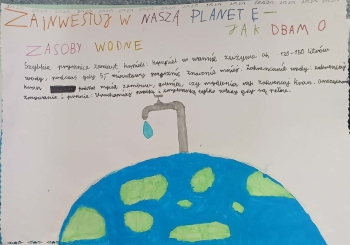 ZAINWESTUJ W NASZĄ PLANETĘ –
JAK DBAM O
ZASOBY WODNE
Szybkie prysznice zamiast kąpieli: kąpiel w wannie zużywa ok. 120-180 litrów
wody, podczas gdy 5- minutowy prysznic znacznie mniej. Zakręcanie wody:
kran podczas mycia zębów, golenia, czy mydlenia rąk zakręcaj kran.
zmywanie i pranie. Uruchamiaj zmywarkę i pralkę tylko wtedy gdy są pełne.